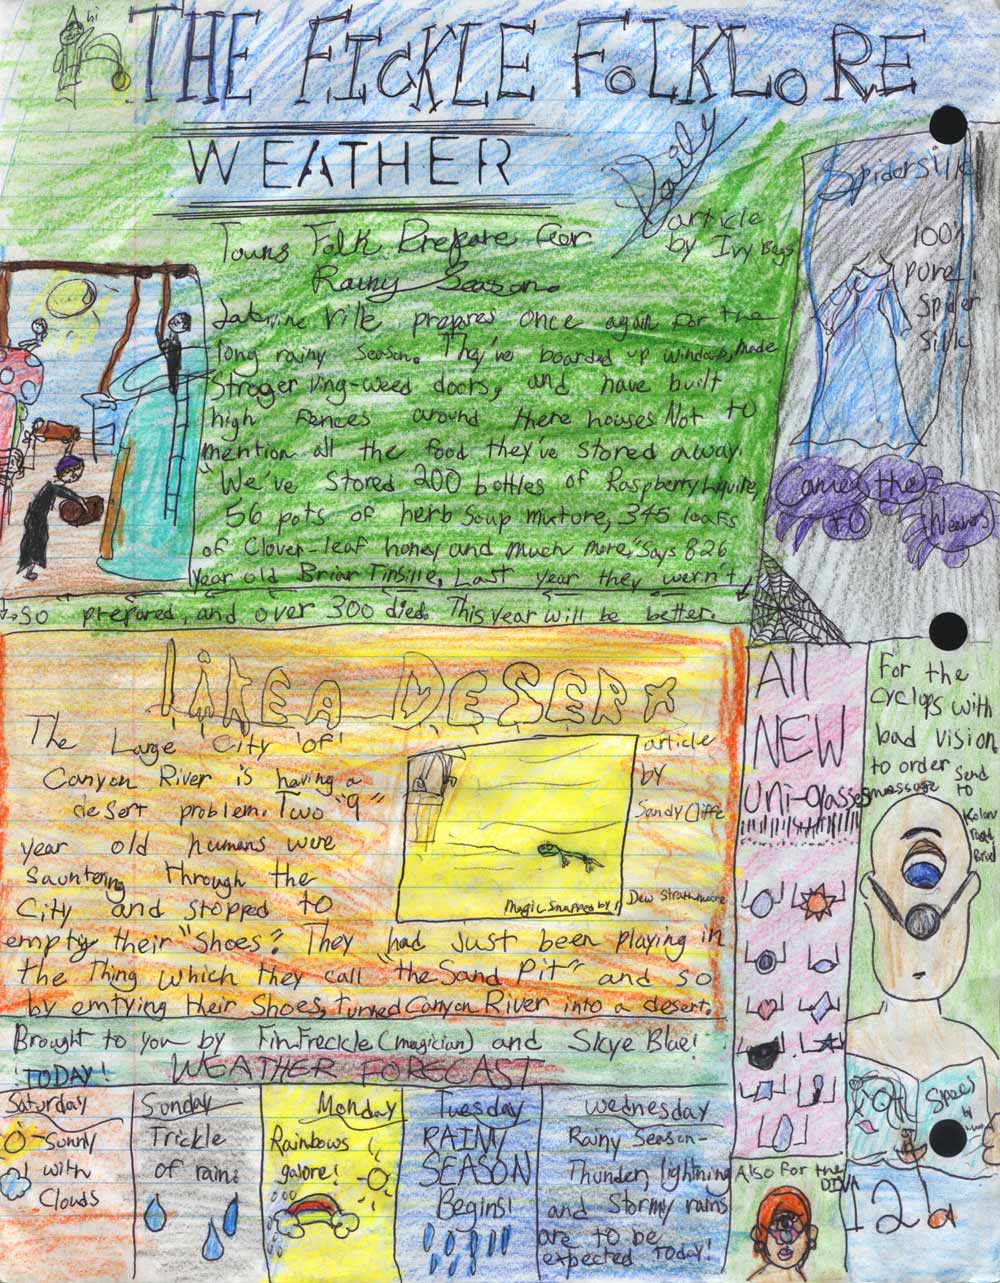 hi
THE FICKLE FOLKLORE
Daily
WEATHER
Towns Folk Prepare For
Rainy Season.
article
by Ivy Bogs
Ville prepares once again for the
long rainy season. They've boarded up windows, made
Stroger ving-weed doors, and have built
high fences around there houses Not to
mention all the food they've stored away.
"We've Stored 200 bottles of Raspberry
56 pots of herb Soup mixture, 345 loafs
of Clover-leaf honey and much more," Says 826
year old Briar Tinsille, Last year they wern't
so prepared, and over 300 died. This year will be better.
Spidersilk
100%
pure
Spider
Silk
Comes
to
the
Weavers
LIKE A DESERT
article
by
Sandy Cliffe
The Large City of
Canyon River is having a
desert problem. Two "9"
year old humans were
sauntering through the
City and stopped to
empty their "Shoes". They had Just been playing in
the Thing which they call "the Sand Pit" and so
by emtying their Shoes, turned Canyon River into a desert.
Magic Snapped by
Dew Strathmoore
All
NEW
Uni-glasses
For the
Cyclops with
bad vision
to order
Send
massage
to
Road
Also for the
DIVA
Spees
by
12d
Brought to you by Fin Freckle (magician) and Skye Blue!
TODAY!
WEATHER FORECAST
Saturday
Sunny
with
Clouds
Sunday
Trickle
of rain.
Monday
Rainbows
galore!
Tuesday
RAINY
SEASON
Begins!
Wednesday
Rainy Season-
Thunder, lightning
and Stormy rains
are to be
expected today!